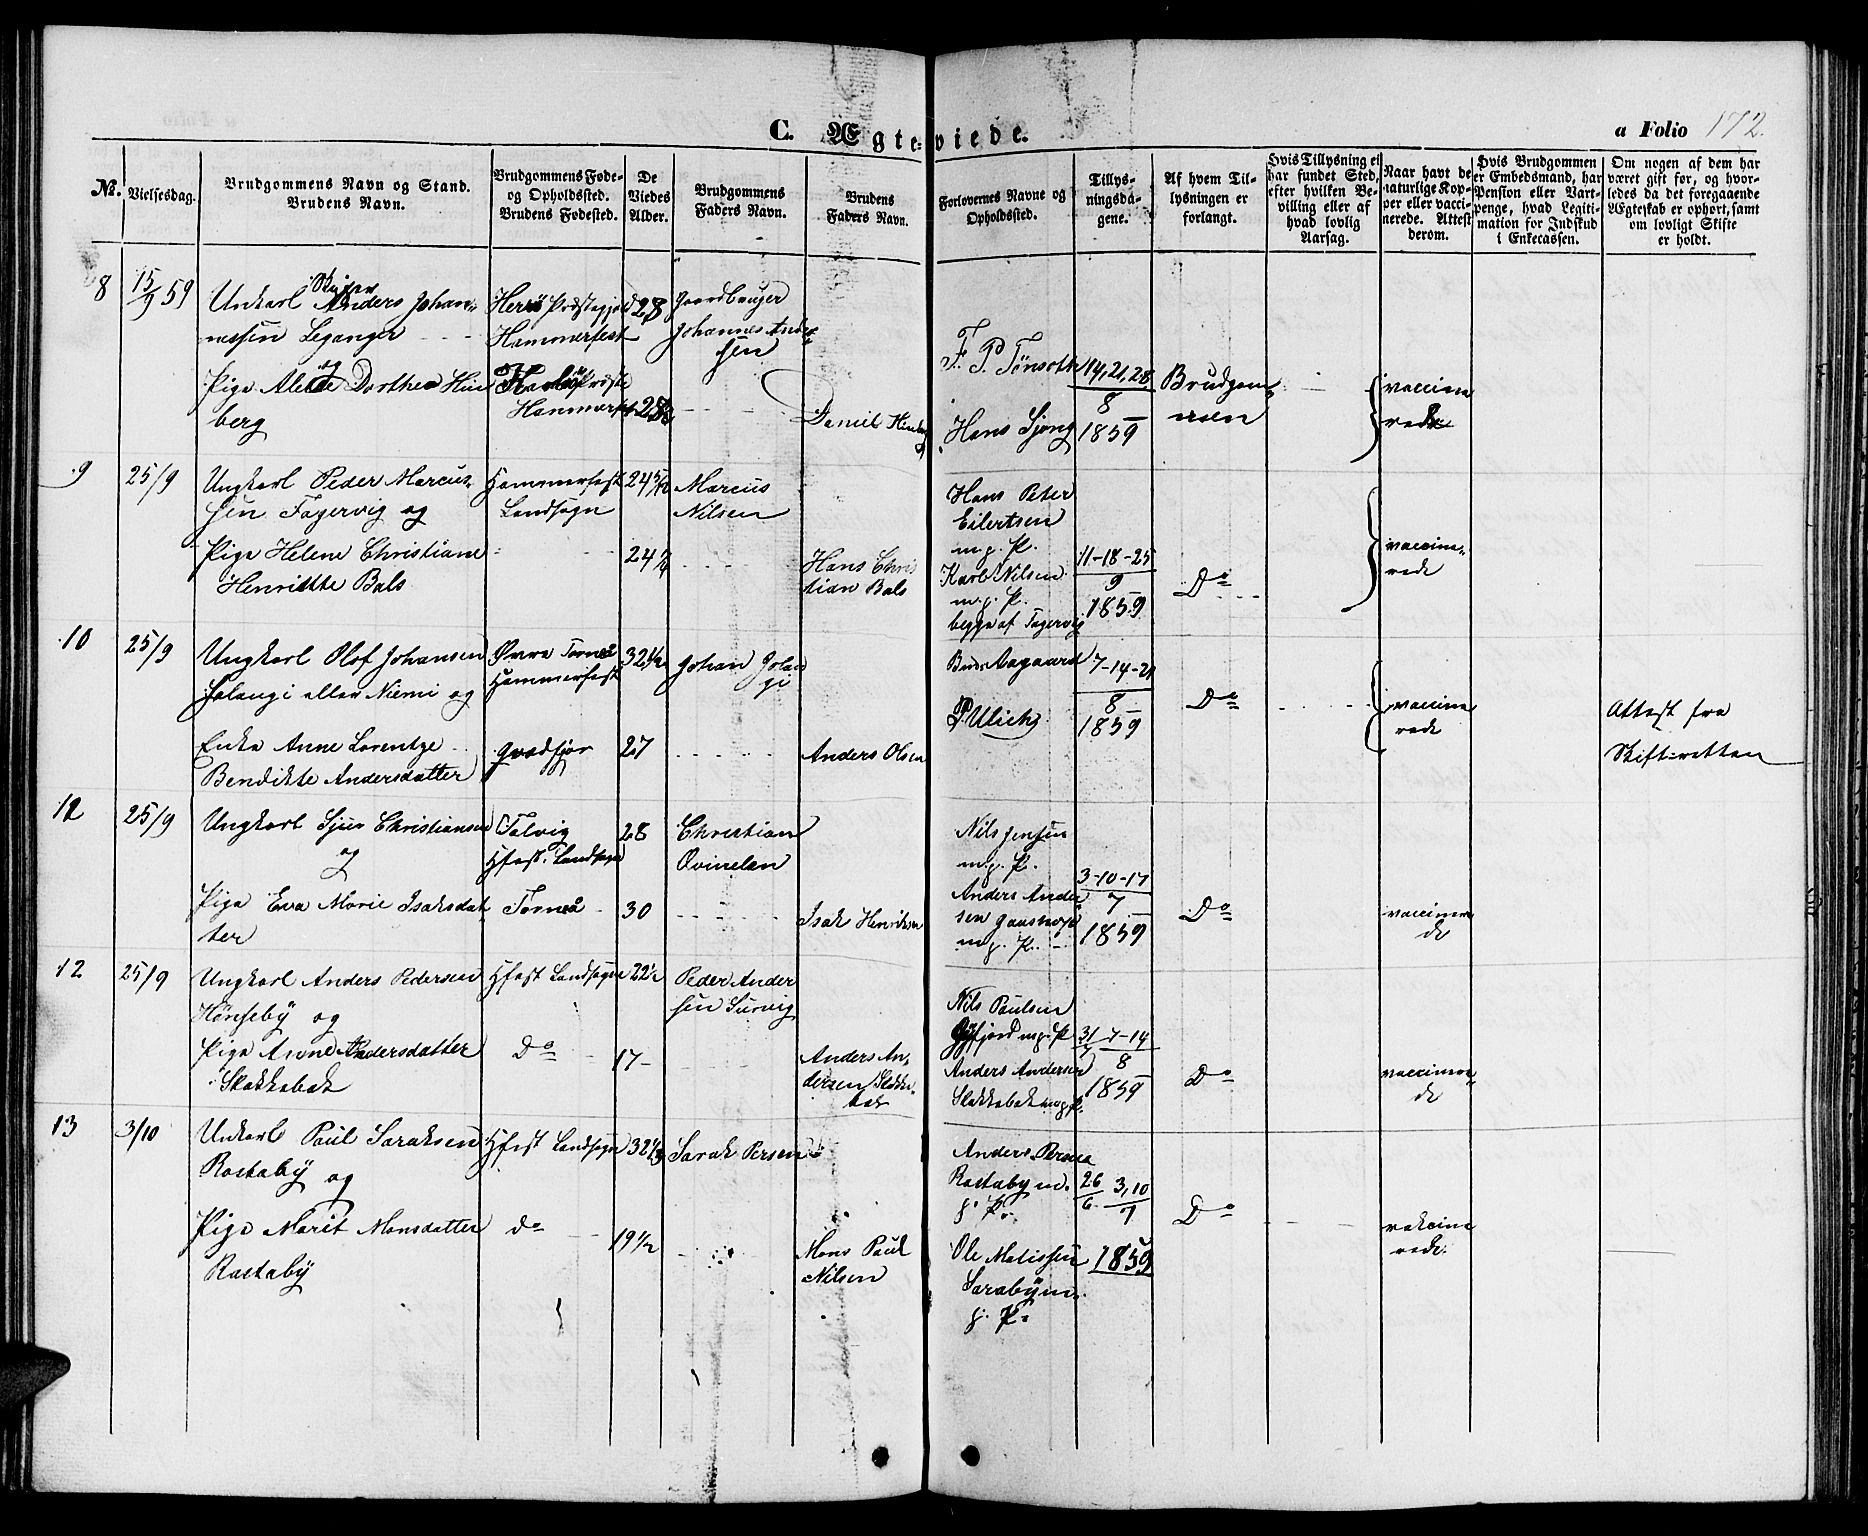 C. Ægteviede.
a Folio 172.
No.
Vielsesdag.
Brudgommens Navn og Stand.
Brudens Navn.
Brudgommens Føde-
og Opholdssted.
Brudens Fødested.
De
Viedes
Alder.
Brudgommens
Faders Navn.
Brudens
Faders Navn.
Forlovernes Navne og
Opholdssted.
Tillys-
ningsda-
gene.
Af hvem Til-
lysningen er
forlangt.
Hvis Tillysning ei
har fundet Sted,
efter hvilken Be-
villing eller af
hvad lovlig
Aarsag.
Naar havt de
naturlige Kop-
per eller vacci-
nerede. Attest
derom.
Hvis Brudgommen
er Embedsmand, har
Pension eller Vart-
penge, hvad Legiti-
mation for Indskud
i Enkecassen.
Om nogen af dem har
været gift før, og hvor-
ledes da det foregaaende
Ægteskab er ophørt, samt
om lovligt Skifte
er holdt.
8
15/9 59
Unkarl Anders Johan-
nessen Leganger
og
Pige Dorthea Hin
berg
Herø Præstegjed
Hammerfest
Hammerfest
28
Gaardbruger
Johannes Andre
sen
Daniel Hinberg
F. P. Tønseth
Hans Sjong
14, 21, 28
8
1859
Brudgom
men
vaccine
rede
9
25/9
Ungkarl Peder Marcus-
sen Fagervig og
Pige Helene Christiane
Henriette Bals
Hammerfest
Landsogn
24 5/12
24 3/4
Marcus
Nilsen
Hans Chris
tian Bals
Hans Peter
Eilertsen
m. p. P.
Karl Nilsen
m. p. P.
begge af Fagervig
11-18-25
9
1859
Do
vaccine-
rede
10
25/9
Ungkarl Olof Johansen
Jolangi eller Niemi og
Enke Anne Lorentze
Bendikte Andersdatter
Øvre Torneå
Hammerfest
Qvædfjor
32 1/2
27
Johan Jolan
gi
Anders Olsen
Aagaard
P. Ulich
7-14-21
8
1859
Do
vaccine
rede
Attest fra
Skifteretten
11
25/9
Ungkarl Sjur Christiansen
og
Pige Eva Marie Isaksdat
ter
Talvig
Hfest. Landsogn
Torneå
28
30
Christian
Qvinelan
Isak Henriksen
Nils Jensen
m. p. P.
Anders Ander
sen
m. p. P.
3-10-17
7
1859
Do
vaccinere
de
12
25/9
Ungkarl Anders Pedersen
Hønseby og
Pige Anne Andersdatter
Slakkabak
Hfest Landsogn
Do
22 1/2
17
Peder Ander
sen Survig
Anders An-
dersen Slakka-
bak
Nils Paulsen
m. p. P.
Anders Andersen
Slakkabak m. p. P.
31/7 7-14
8
1859
Do
vaccinere
de
13
3/10
Unkarl Paul Saraksen
Rastaby og
Pige Marit Monsdatter
Rastaby
Hfest Landsogn
do
32 1/3
19 1/2
Sarak Persen
Mons Paul
Nilsen
Anders Persen
Rastaby m.
p. P.
Ole Matissen
Saraby m.
p. P.
26/6 3, 10
7
1859
Do
vakcine
rede